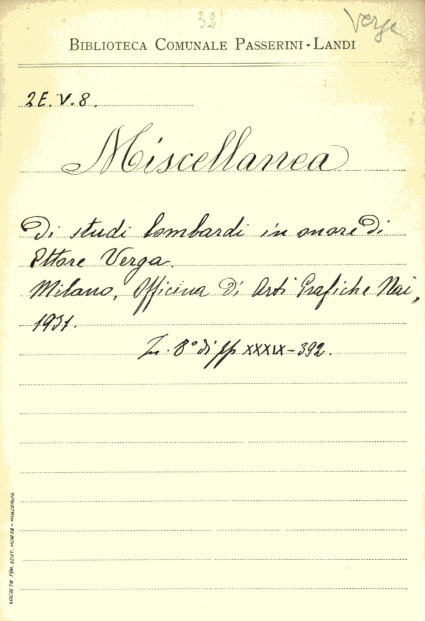 32
Verga
BIBLIOTECA COMUNALE PASSERINI-LANDI
2E.V.8.
Miscellanea
Di studi lombardi in onore di
Ettore Verga.
Milano, Officina Di Arti Grafiche
1931.
In 8° di pp XXXIX-392.